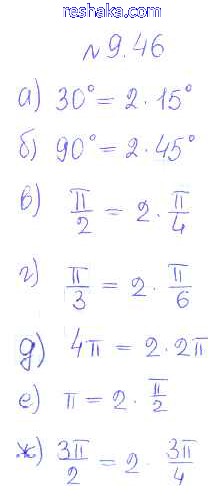 reshaka.com
№9.46
а) 30° = 2 · 15°
б) 90° = 2 · 45°
в) π/2 = 2 · π/4
г) π/3 = 2 · π/6
д) 4π = 2 · 2π
е) π = 2 · π/2
ж) 3π/2 = 2 · 3π/4